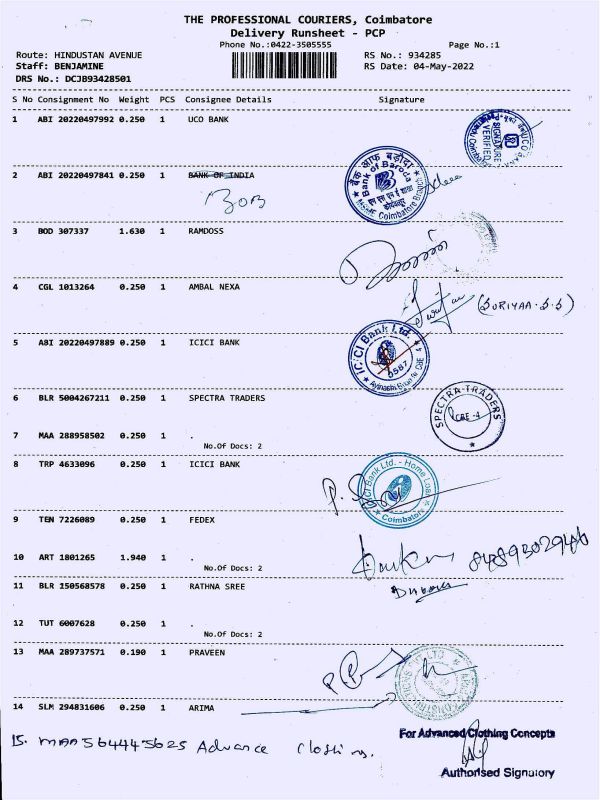 THE PROFESSIONAL COURIERS, Coimbatore
Delivery Runsheet - PCP
Phone No.:0422-3505555 Page No.:1
Route: HINDUSTAN AVENUE RS No.: 934285
Staff: BENJAMINE RS Date: 04-May-2022
DRS No.: DCJB93428501
S No Consignment No Weight PCS Consignee Details Signature
1 ABI 20220497992 0.250 1 UCO BANK
SIGNATURE VERIFIED
2 ABI 20220497841 0.250 1 BANK OF INDIA
BOB
बैंक ऑफ़ बड़ौदा
Bank of Baroda
Coimbatore
3 BOD 307337 1.630 1 RAMDOSS
4 CGL 1013264 0.250 1 AMBAL NEXA
(SURIYAA.S.S)
5 ABI 20220497889 0.250 1 ICICI BANK
ICICI Bank Ltd.
6 BLR 5004267211 0.250 1 SPECTRA TRADERS
SPECTRA TRADERS
CBE -4
7 MAA 288958502 0.250 1 .
No.Of Docs: 2
8 TRP 4633096 0.250 1 ICICI BANK
ICICI Bank Ltd. - Home Loan
Coimbatore
9 TEN 7226089 0.250 1 FEDEX
10 ART 1801265 1.940 1 .
No.Of Docs: 2
11 BLR 150568578 0.250 1 RATHNA SREE
12 TUT 6007628 0.250 1 .
No.Of Docs: 2
13 MAA 289737571 0.190 1 PRAVEEN
14 SLM 294831606 0.250 1 ARIMA
15. MAA564445625 Advance Clothing.
For Advanced Clothing Concepts
Authorised Signatory